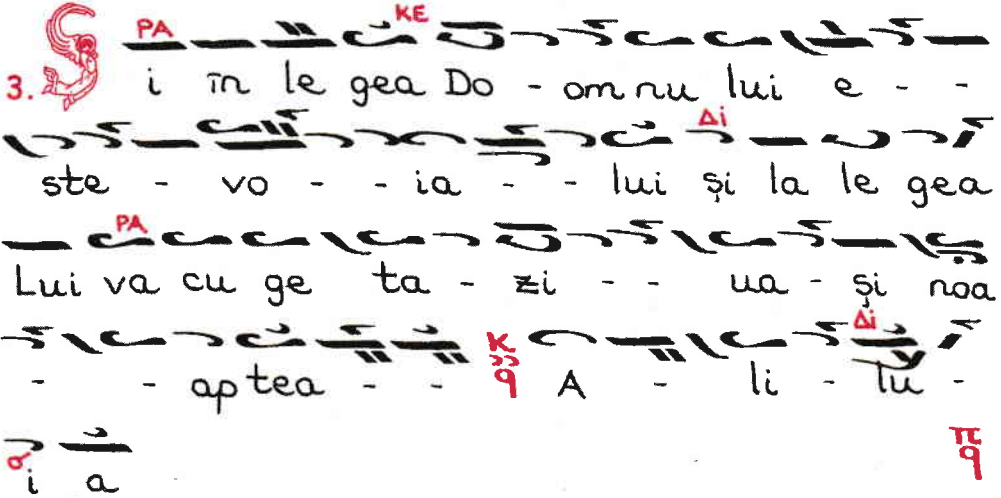 ΠΑ ΚΕ
3. Și în le gea Do - om nu lui e - -
Δi
ste - vo - - ia - - lui și la le gea
ΠΑ
Lui va cu ge ta - zi - - ua - și noa
Δi
- - ap tea - - A - li - lu -
i a